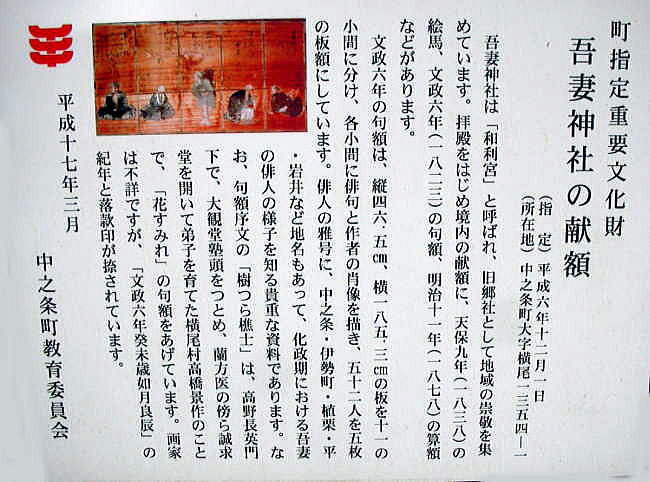 町指定重要文化財
吾妻神社の献額
(指 定) 平成六年十二月一日
(所在地) 中之条町大字横尾一三五四―一
吾妻神社は「和利宮」と呼ばれ、旧郷社として地域の崇敬を集
めています。拝殿をはじめ境内の献額に、天保九年(一八三八)の
絵馬、文政六年(一八二三)の句額、明治十一年(一八七八)の算額
などがあります。
文政六年の句額は、縦四六.五㎝、横一八五.三㎝の板を十一の
小間に分け、各小間に俳句と作者の肖像を描き、五十二人を五枚
の板額にしています。俳人の雅号に、中之条・伊勢町・植栗・平
・岩井など地名もあって、化政期における吾妻
の俳人の様子を知る貴重な資料であります。な
お、句額序文の「樹つら樵士」は、高野長英門
下で、大観堂塾頭をつとめ、蘭方医の傍ら誠求
堂を開いて弟子を育てた横尾村高橋景作のこと
で、「花すみれ」の句額をあげています。画家
は不詳ですが、「文政六年癸未歳如月良辰」の
紀年と落款印が捺されています。
平成十七年三月
中之条町教育委員会